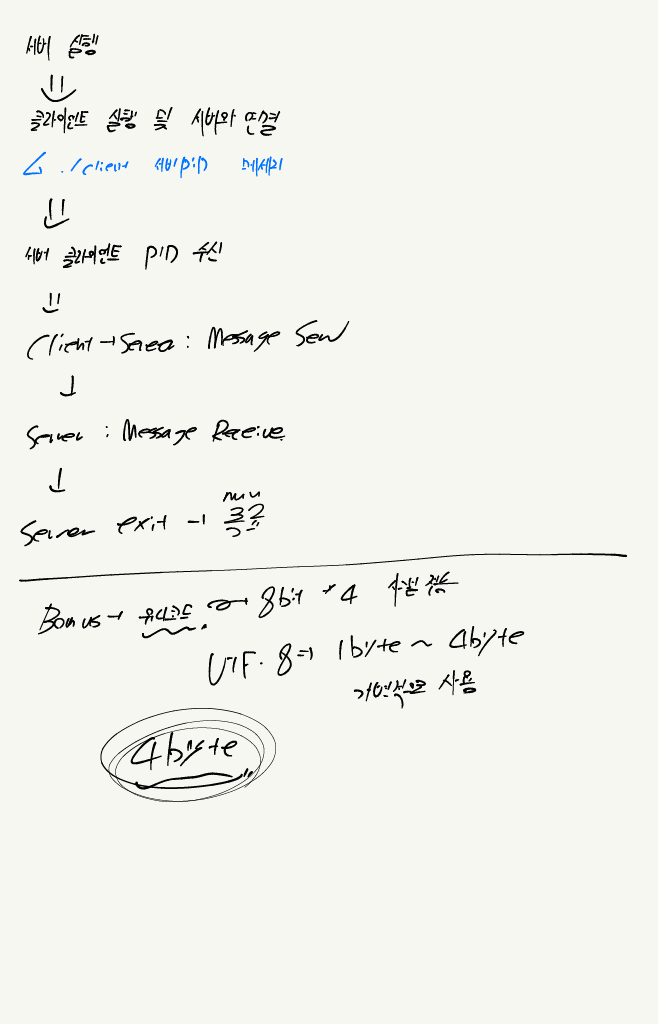 서버 실행
⇓
클라이언트 실행 및 서버와 연결
↳ ./client 서버PID 메세지
⇓
서버 클라이언트 PID 수신
⇓
Client → Server : Message Send
↓
Server : Message Receive
↓
null
Server exit → 종료
Bonus → 유니코드. → 8bit * 4
UTF-8 ⇒ 1byte ~ 4byte
가변적으로 사용
4byte